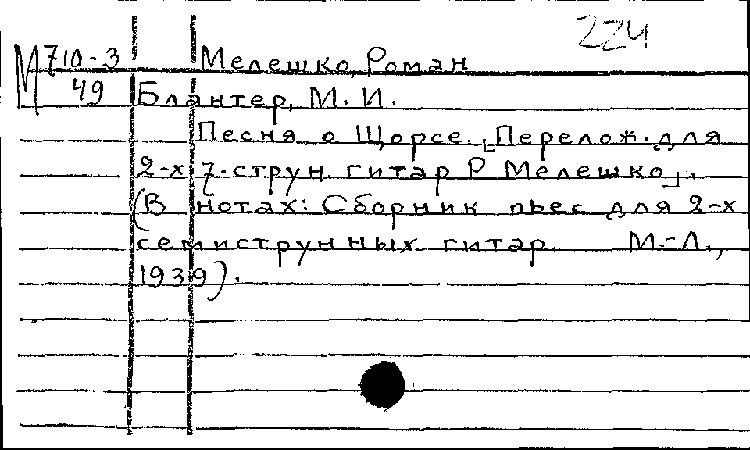 224
М 710-3 Мелешко, Роман
49 Блантер, М. И.
Песня о Щорсе. [Перелож. для
2-х 7-струн гитар Р Мелешко].
(В нотах: Сборник пьес для 2-х
семиструнных гитар М.-Л.,
1939).